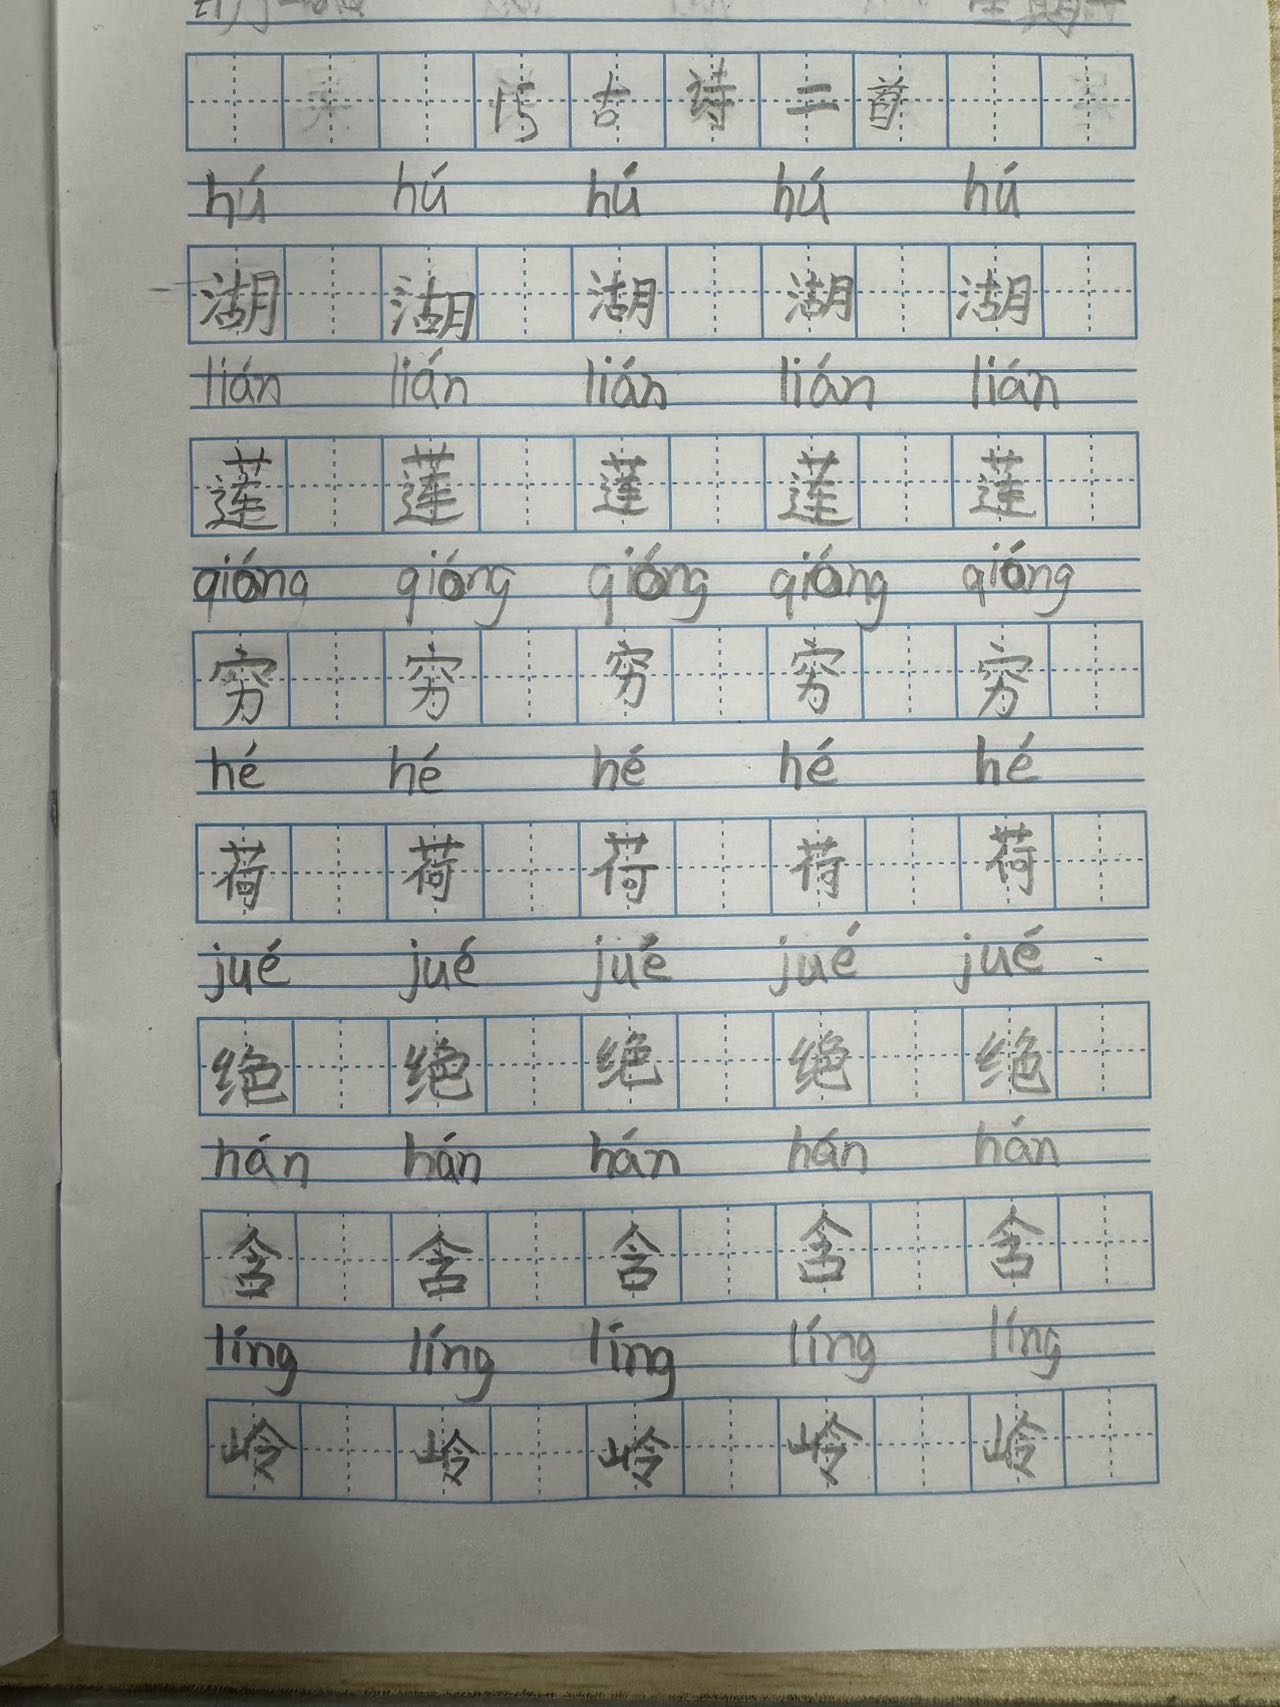 15 古诗二首
hú hú hú hú hú
湖 湖 湖 湖 湖
lián lián lián lián lián
莲 莲 莲 莲 莲
qióng qióng qióng qióng qióng
穷 穷 穷 穷 穷
hé hé hé hé hé
荷 荷 荷 荷 荷
jué jué jué jué jué
绝 绝 绝 绝 绝
hán hán hán hán hán
含 含 含 含 含
líng líng líng líng líng
岭 岭 岭 岭 岭